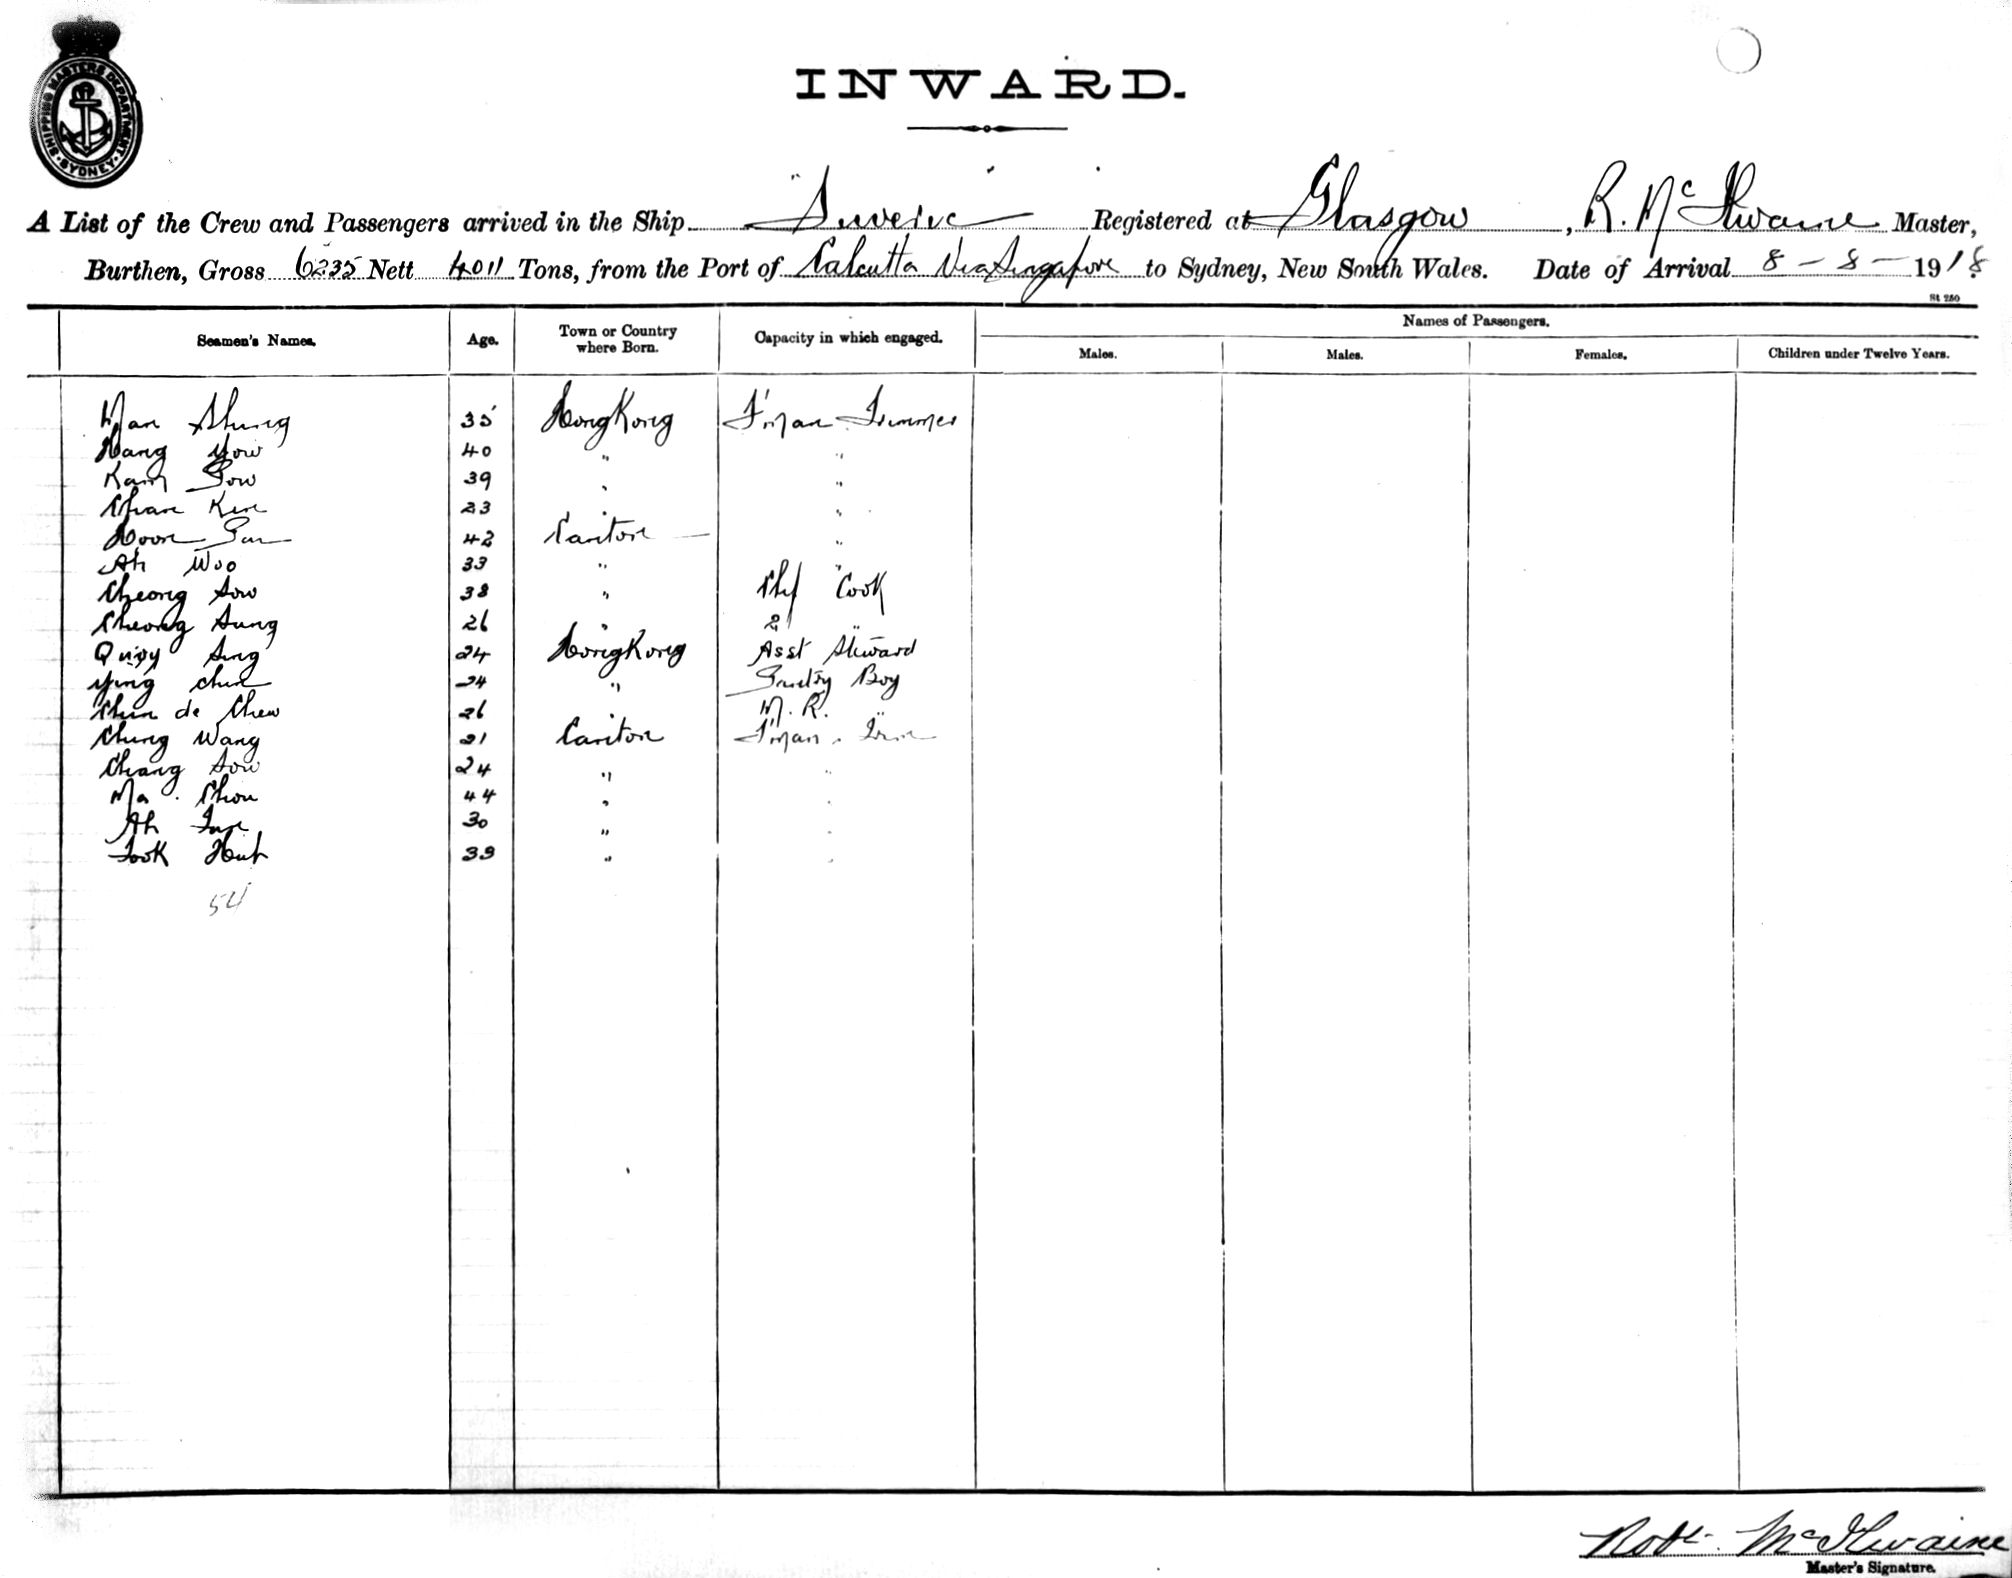 SHIPPING MASTERS DEPARTMENT
SYDNEY
INWARD.
A List of the Crew and Passengers arrived in the Ship Suveric Registered at Glasgow, R. McIlwaine Master,
Burthen, Gross 6235 Nett 4011 Tons, from the Port of Calcutta Via Singapore to Sydney, New South Wales. Date of Arrival 8 - 8 - 1918
St 250
Seamen's Names. Age. Town or Country where Born. Capacity in which engaged. Names of Passengers.
Males. Males. Females. Children under Twelve Years.
Man Shung 35 Hong Kong F'man Trimmer
Hang Yow 40 " "
Kam Sow 39 " "
Chan Ken 23 " "
Hoon 42 Canton "
Ah Woo 33 " "
Cheong Sow 38 " Chf Cook
Cheong Sung 26 " 2d "
Quoy Sing 24 Hong Kong Asst Steward
Ying Chun 24 " Pantry Boy
Chin de Chew 26 " M. R.
Chung Wang 21 Canton F'man Trim
Chang Sow 24 " "
Ma Chou 44 " "
Ah 30 " "
Fook 33 " "
54
Robt. McIlwaine
Master's Signature.